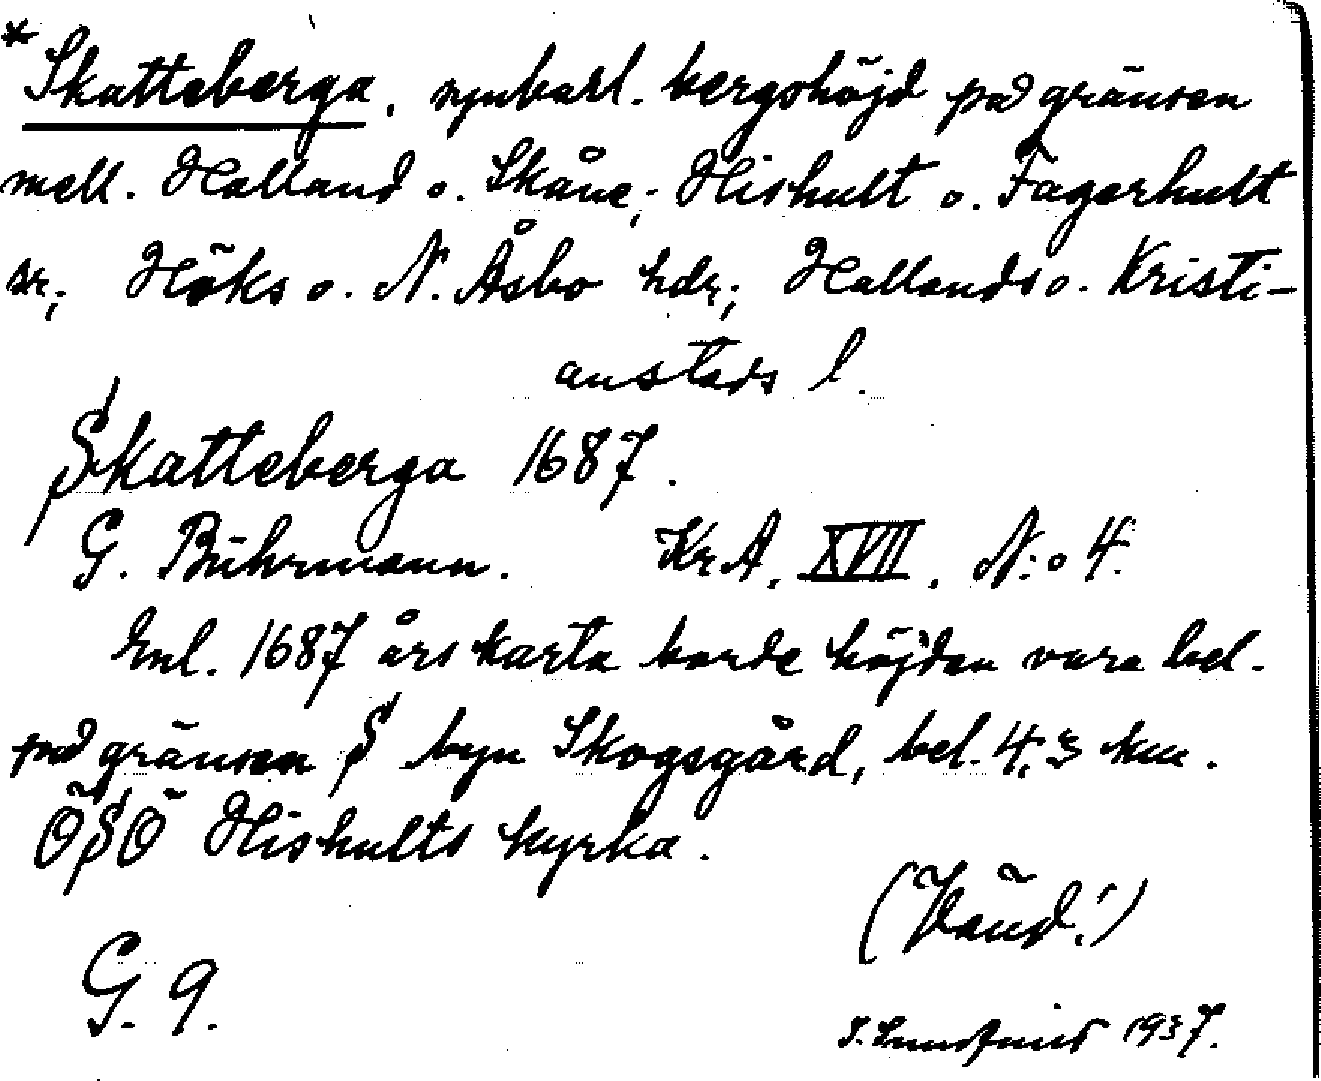 * Skatteberga, synbarl. bergshöjd på gränsen
mell. Halland o. Skåne; Hishult o. Fagerhult
sr; Höks o. N. Åsbo hdr; Hallands o. Kristi-
anstads l.
Skatteberga 1687.
G. Buhrmann. Kr. A. XVII. N:o 4.
Enl. 1687 års karta borde höjden vara bel.
på gränsen S byn Skogsgård, bel. 4,3 km.
ÖSÖ Hishults kyrka.
(Vänd!)
G. 9.
I. Lundquist 1937.